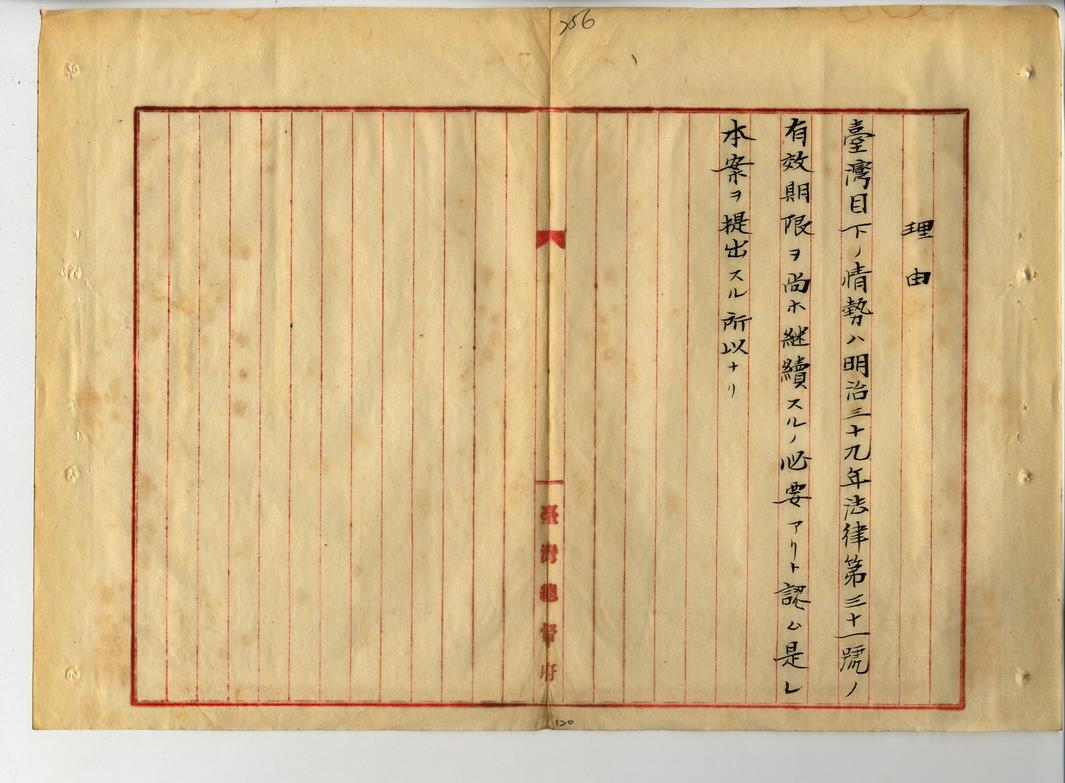 256
理由
臺灣目下ノ情勢ハ明治三十九年法律第三十一號ノ
有效期限ヲ尚ホ継續スルノ必要アリト認ム是レ
本案ヲ提出スル所以ナリ
臺灣總督府
120